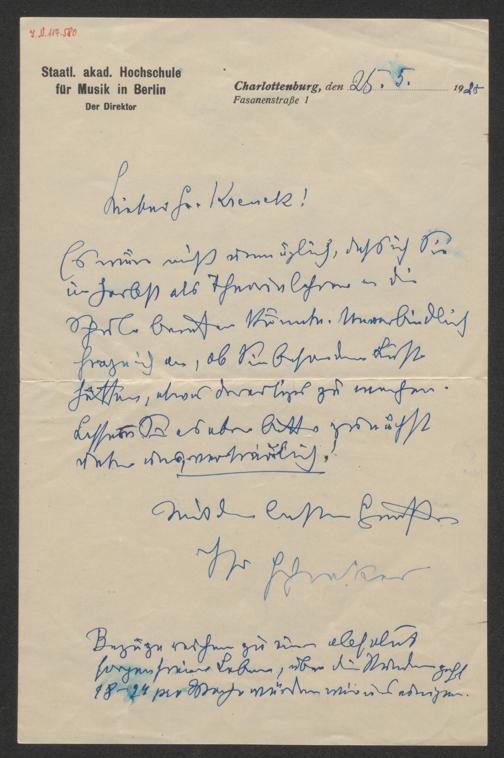 I.N. 117.580
Staatl. akad. Hochschule
für Musik in Berlin
Der Direktor
Charlottenburg, den 26. 5. 1925
Fasanenstraße 1
Lieber Hr. Krenek!
Es wäre nicht unmöglich, daß ich Sie
im Herbst als Theorielehrer an die
Schule berufen könnte. Unverbindlich
frage ich an, ob Sie besondere Lust
hätten, etwas derartiges zu machen.
Lassen Sie es aber bitte zunächst
unter uns, vertraulich!
Mit den besten Grüßen
Ihr Schreker
Bezüge reichen zu einem absolut
sorgenfreien Leben, über die Stundenzahl
18–24 pro Woche würden wir uns einigen.